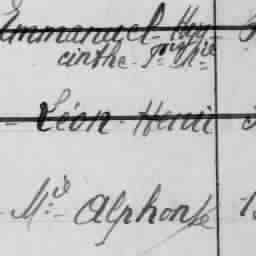 Emmanuel-Hya-
cinthe
- Léon-Henri
- Mis- Alphonse